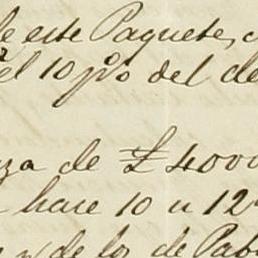 de este Paquete, c
el 10 p%o del de
za de £4000
hace 10 u 12
y de los de Pab